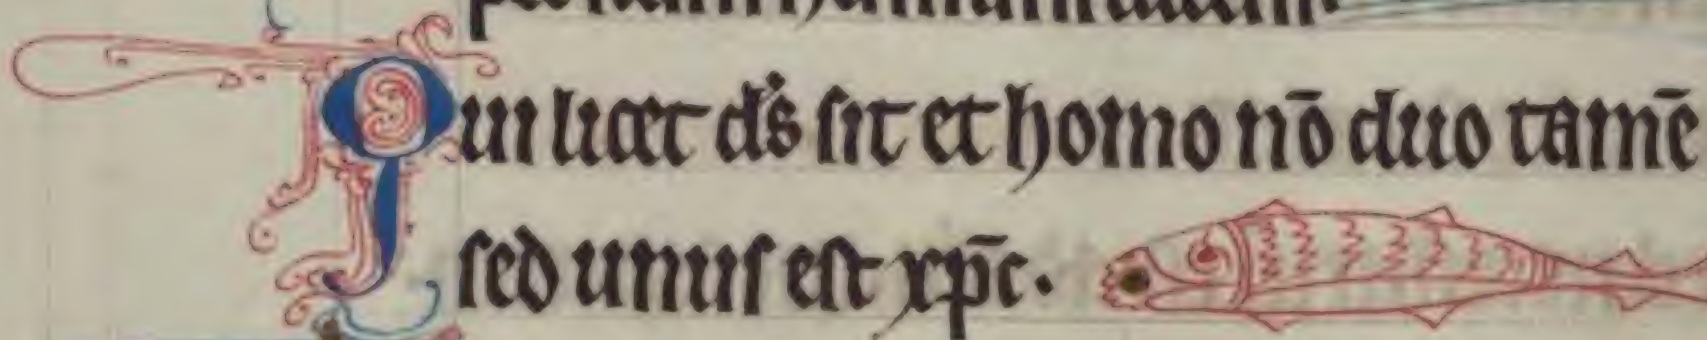 Qui licet ds sit et homo nō duo tamē
sed unus est xp̄c.